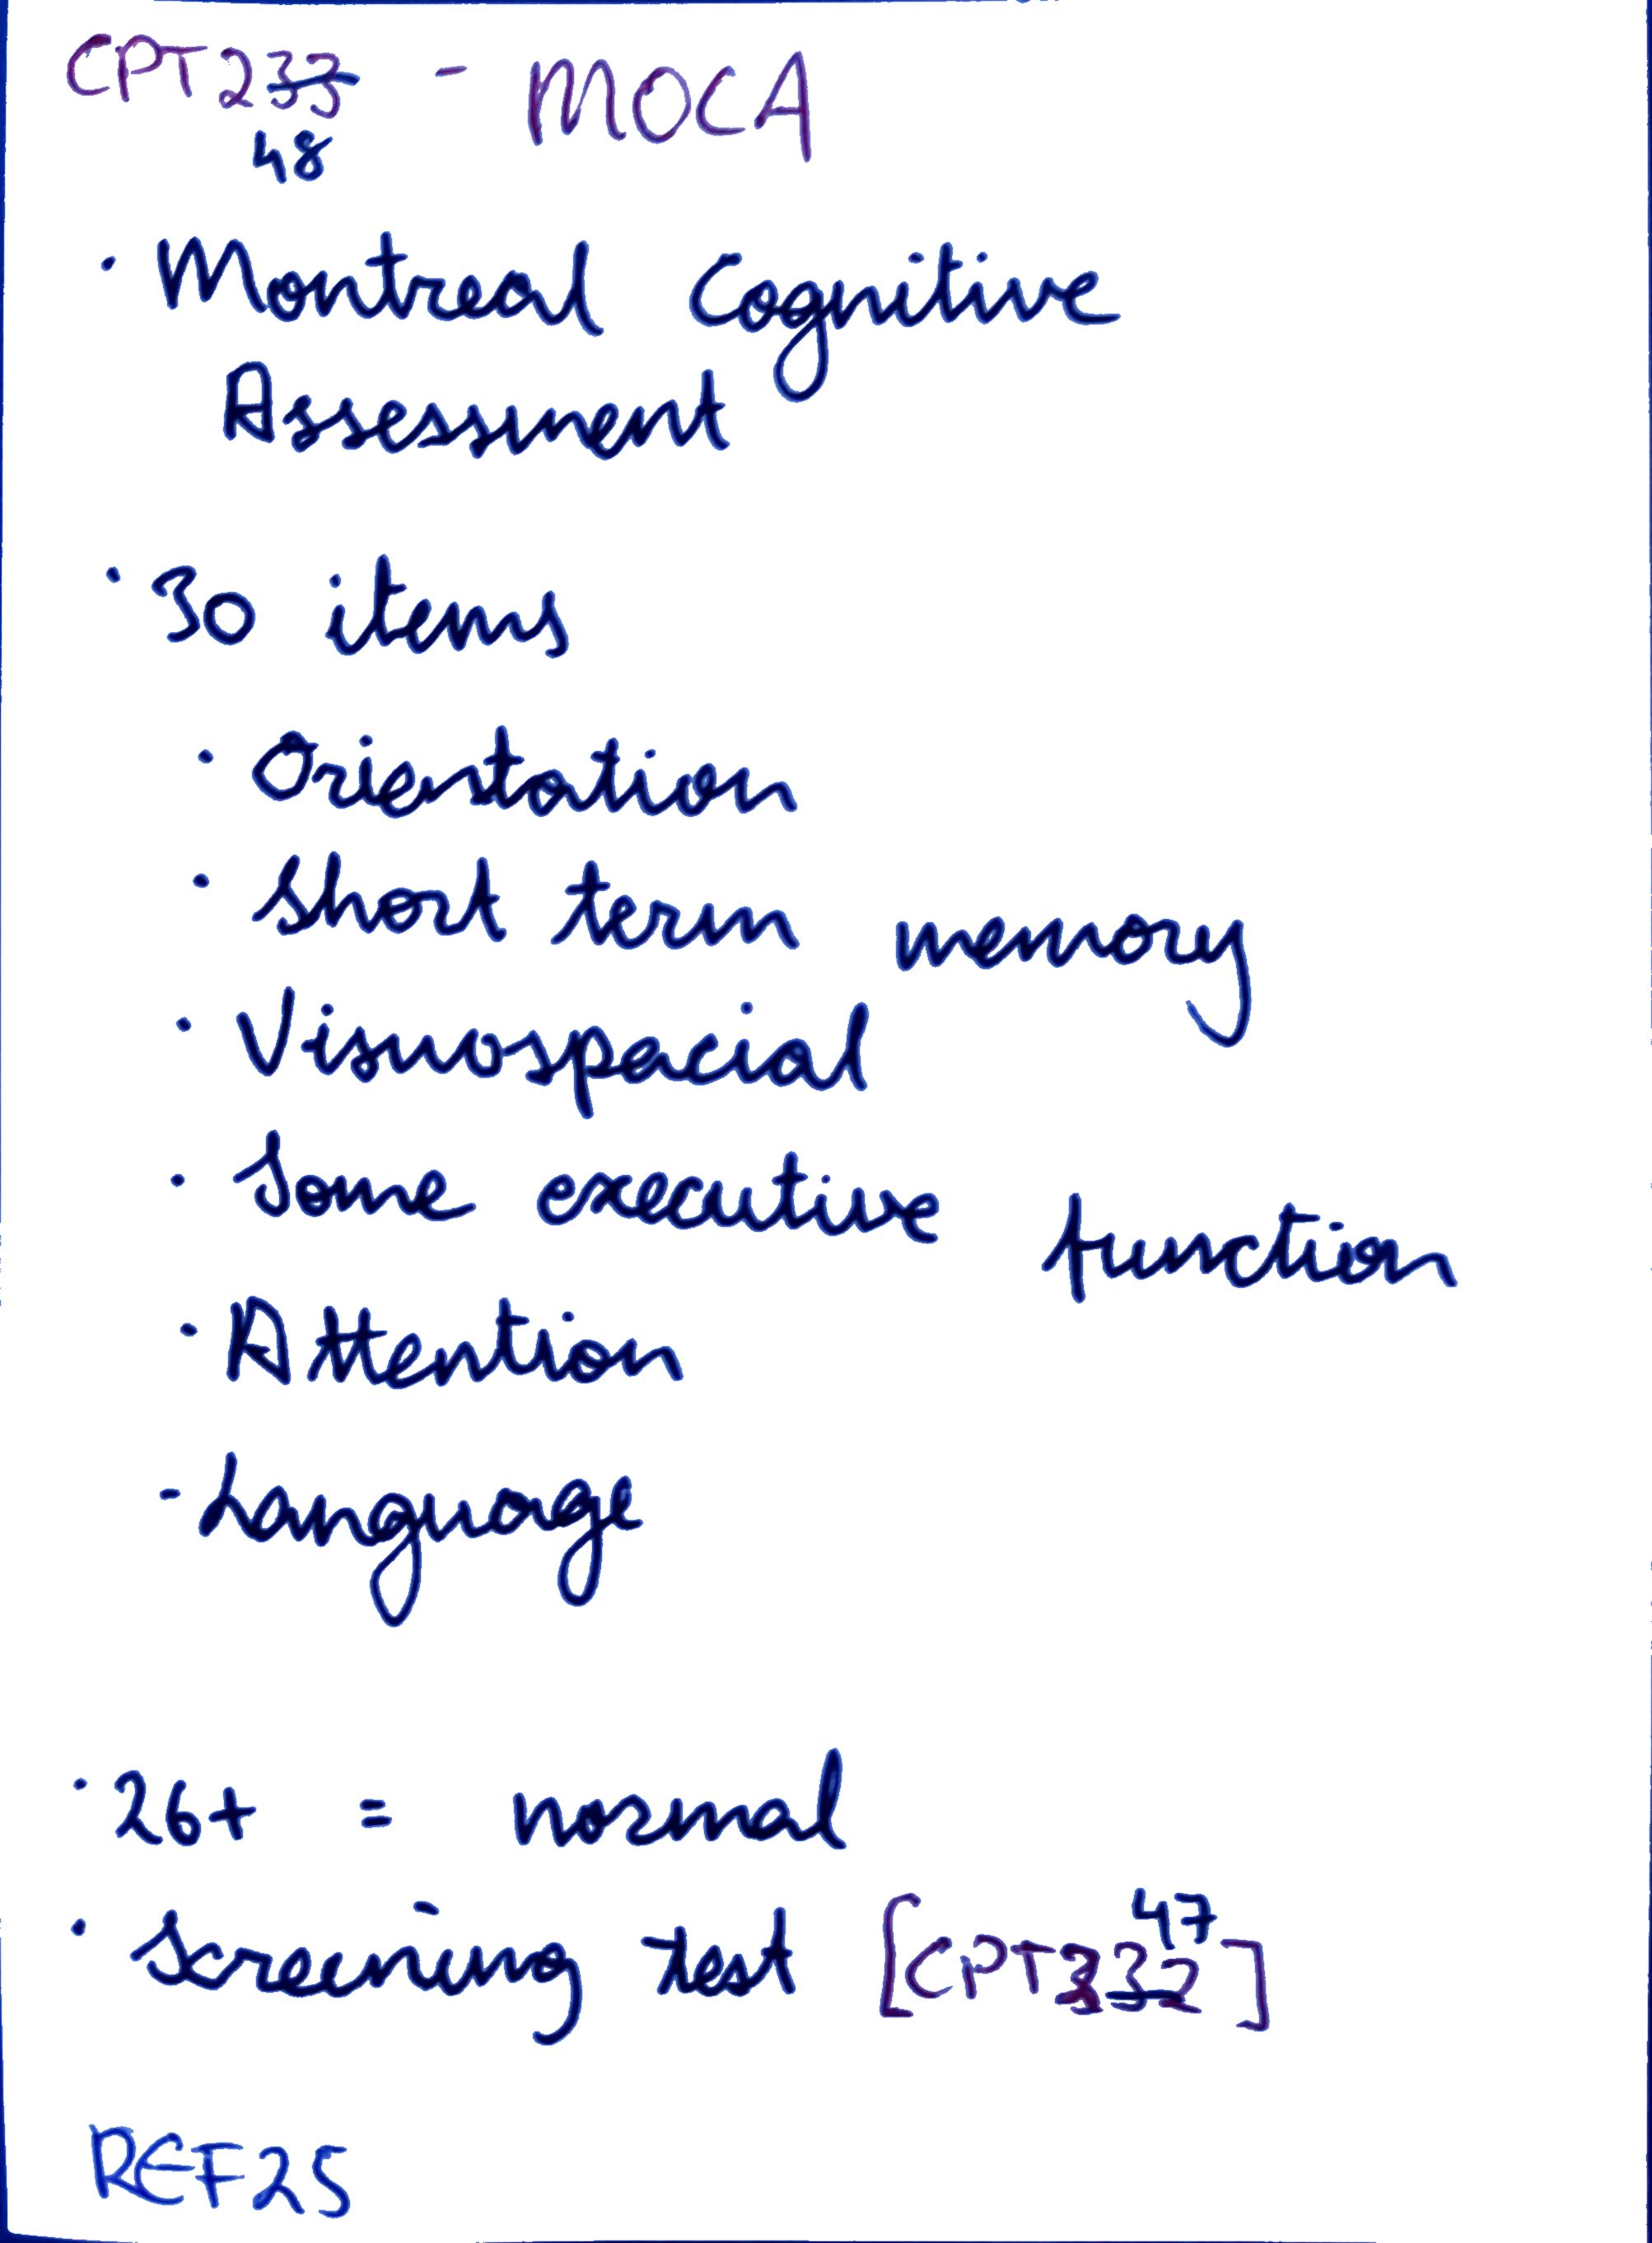 CPT233 - MOCA
48
· Montreal Cognitive
Assessment
· 30 items
· Orientation
· Short term memory
· Visuospacial
· Some executive function
· Attention
- Language
· 26+ = normal
47
· Screening test [CPT232]
REF25